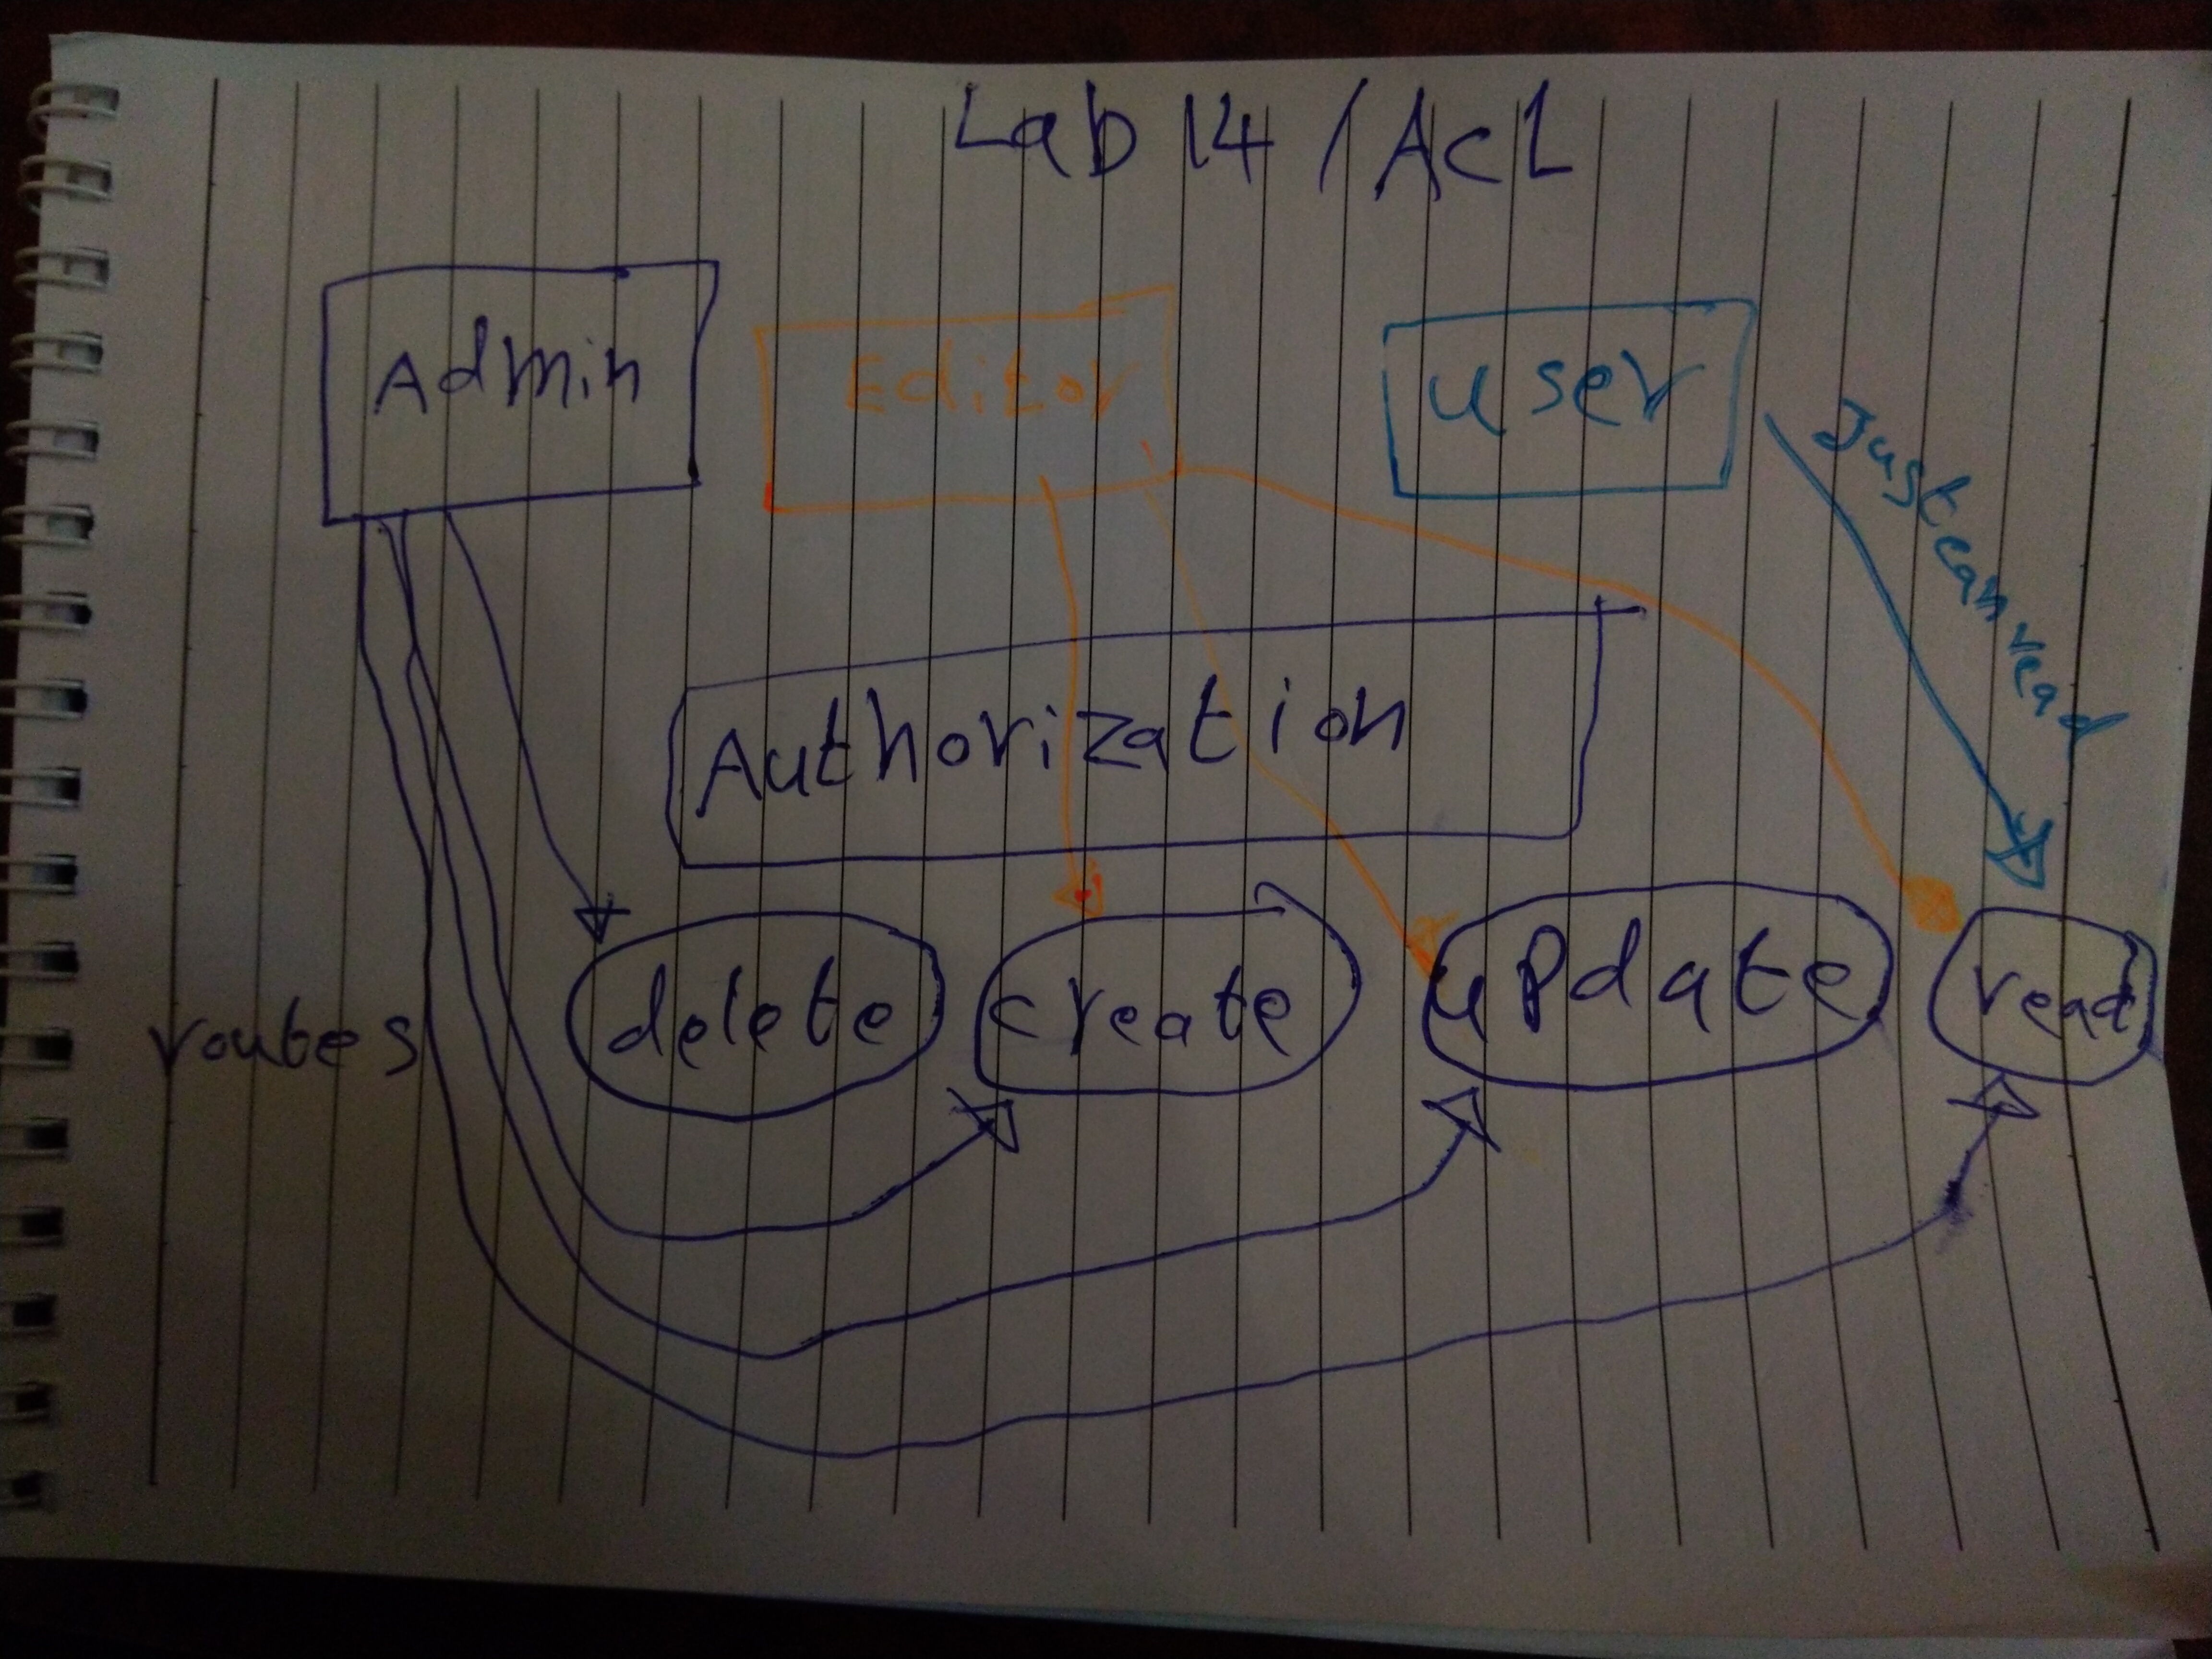 Lab 14 / ACL
Admin
Editor
user
Just can read
Authorization
routes
delete
create
update
read